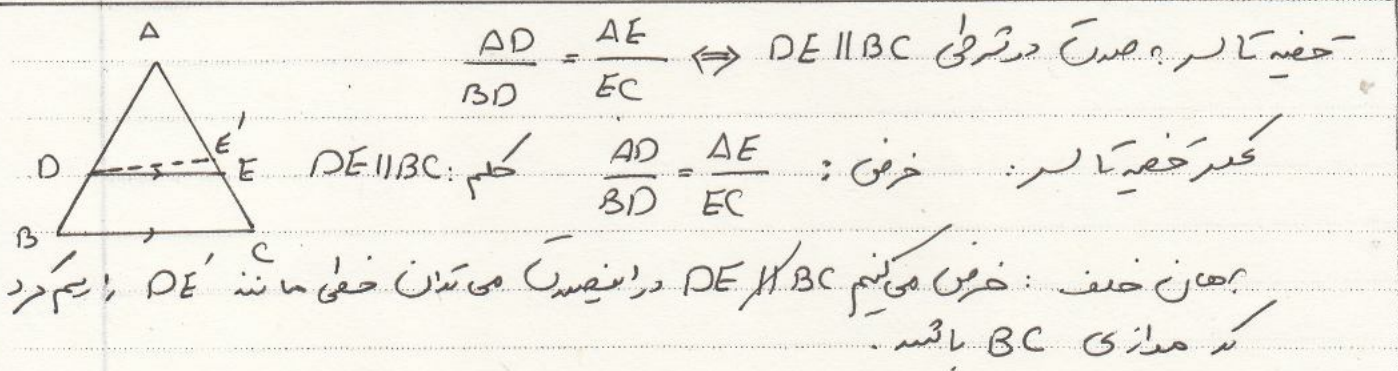 قضیه تالس به صورت دو شرطی DE || BC ⇔ AD/BD = AE/EC
عکس قضیه تالس: فرض: AD/BD = AE/EC حکم: DE || BC
برهان خلف: فرض می‌کنیم DE ∦ BC در اینصورت می‌توان خطی مانند DE' را رسم کرد
که موازی BC باشد.
A
E'
D
E
B
C